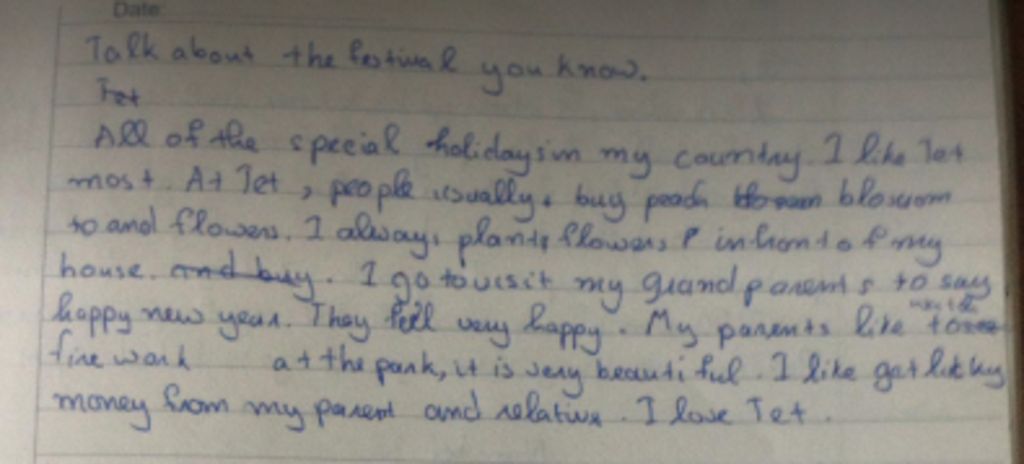 Date:
Talk about the festival you know.
Tet
All of the special holidays in my country. I like Tet
most. At Tet, people usually, buy peach blossom
to and flowers. I always, plants flowers in front of my
house. and buy. I go to visit my grandparents to say
happy new year. They feel very happy. My parents like to
fire work at the park, it is very beautiful. I like get lucky
money from my parent and relative. I love Tet.